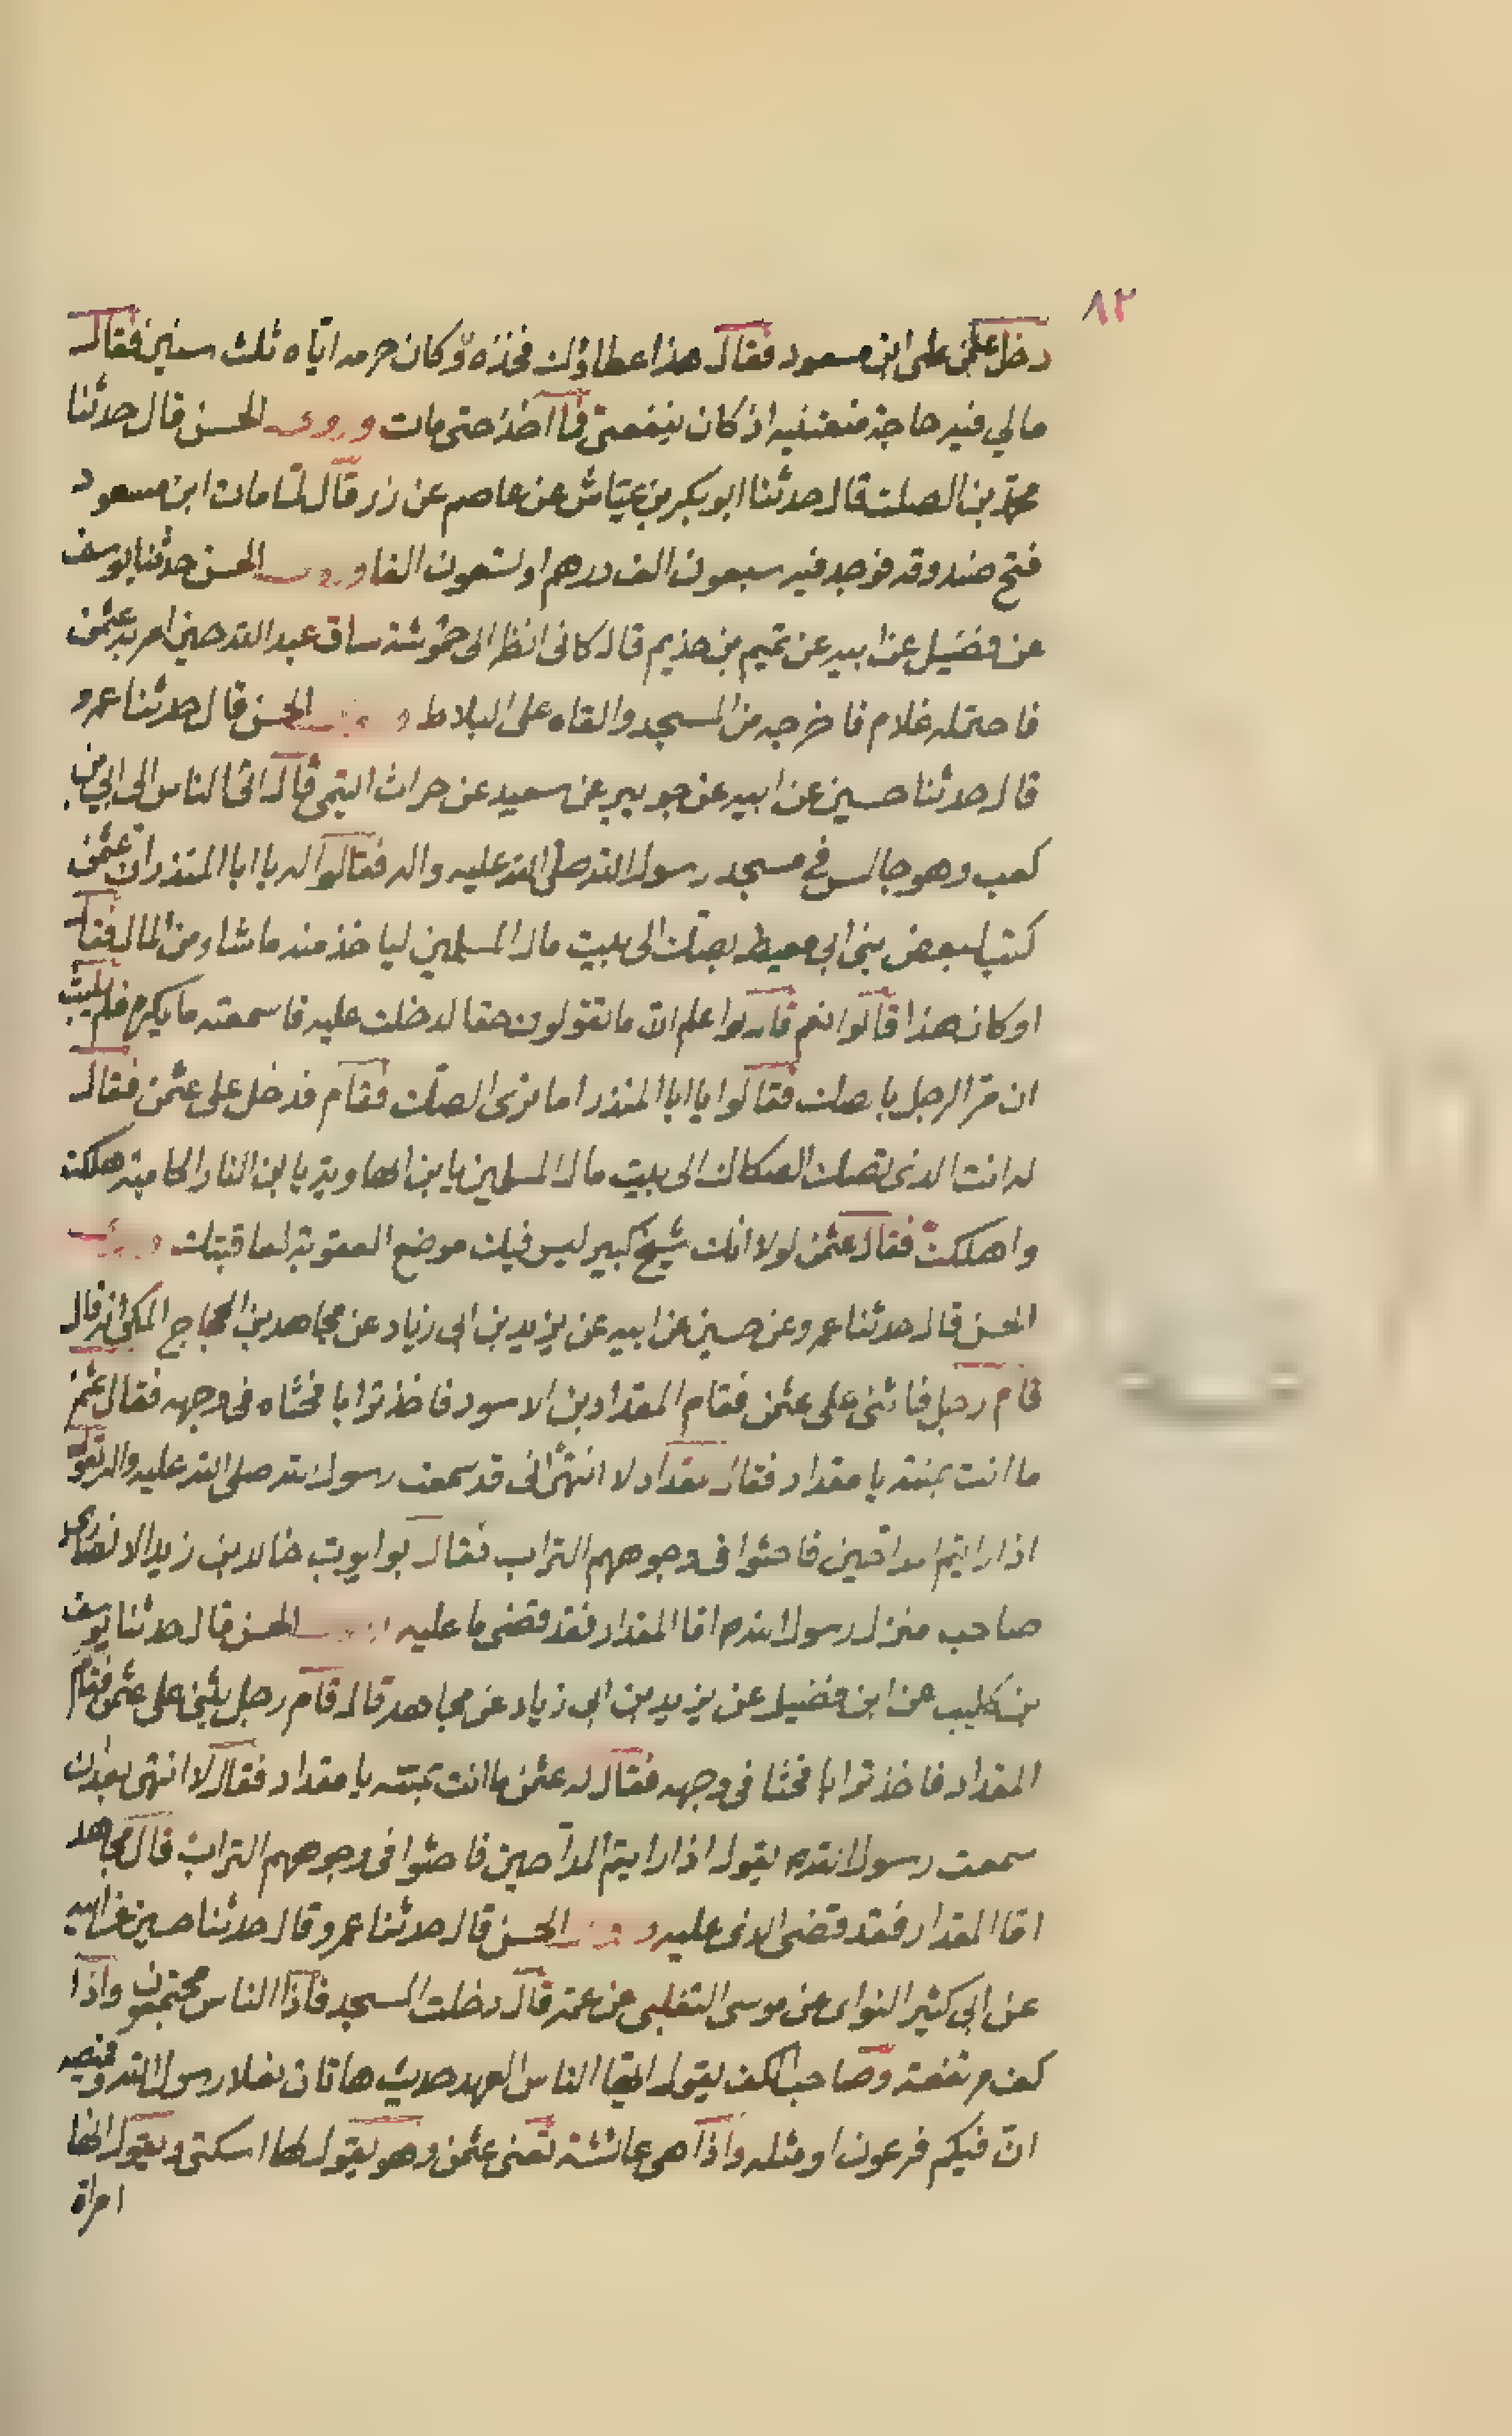 ٨٢
دخل عثمن على ابن مسعود فقال هذا عطاؤك فخذه وكان حرمه اياه ثلث سنين فقال
مالي فيه حاجة منعتنيه اذ كان ينفعني فما اخذ حتى مات وروى الحسن قال حدثنا
محمد بن الصلت قال حدثنا ابو بكر بن عيّاش عن عاصم عن زر قال لمّا مات ابن مسعود
فتح صندوقه فوجد فيه سبعون الف درهم او تسعون الفا وروى الحسن حدثنا يوسف
عن فضيل عن ابيه عن تميم بن حذيم قال كاني انظر الى حموشة ساق عبد الله حين امر به عثمن
فاحتمله غلام فاخرجه من المسجد والقاه على البلاط الحسن قال حدثنا عمرو
قال حدثنا حسين عن ابيه عن جويبر عن سعيد عن حراث التيمى قال اتى الناس الى ابي بن
كعب وهو جالس في مسجد رسول الله صلى الله عليه واله فقالوا له يا ابا المنذر ان عثمن
كتب لبعض بني ابي معيط بصك الى بيت مال المسلمين لياخذ منه ما شاء من المال فقال
اوكان هذا قالوا نعم قال لو اعلم ان ما تقولون حقا لدخلت عليه فاسمعته ما يكره فلم يلبث
ان مرّ الرجل بالصك فقالوا يا ابا المنذر اما ترى الصكّ فقام فدخل على عثمن فقال
له انت الذى تصك الصكاك الى بيت مال المسلمين يا بن الهاوية يا بن النار الحامية هلكت
واهلكت فقال عثمن لولا انك شيخ كبير ليس فيك موضع العقوبة لعاقبتك
الحسن قال حدثنا عمرو عن حسين عن ابيه عن يزيد بن ابى زياد عن مجاهد بن الحجاج المكي انه قال
قام رجل فاثنى على عثمن فقام المقداد بن الاسود فاخذ ترابا فحثاه فى وجهه فقال عثمن
ما انت بمنته يا مقداد فقال مقداد لا انتهى انى قد سمعت رسول الله صلى الله عليه واله يقول
اذا رايتم المداحين فاحثوا فى وجوههم التراب فقال بو ايوب خالد بن زيد الانصارى
صاحب منزل رسول الله ص امّا المقداد فقد قضى ما عليه الحسن قال حدثنا يوسف
بن كليب عن ابن فضيل عن يزيد بن ابى زياد عن مجاهد قال قام رجل يثنى على عثمن فقام
المقداد فاخذ ترابا فحثا فى وجهه فقال له عثمن ما انت بمنته يا مقداد فقال لا انتهى بعد ان
سمعت رسول الله ص يقول اذا رايتم المدّاحين فاحثوا فى وجوههم التراب قال مجاهد
امّا المقداد فقد قضى الذى عليه الحسن قال حدثنا عمرو قال حدثنا حسين عن ابيه
عن ابى كثير النواى عن موسى التغلبى عن عمه قال دخلت المسجد فاذا الناس مجتمعون واذا
كف مرتفعة وصاحب الكف يقول ايها الناس العهد حديث هاتان نعلا رسول الله وقميصه
انّ فيكم فرعون او مثله واذا هى عائشة تعنى عثمن وهو يقول لها اسكتى ويقول انها
امراة